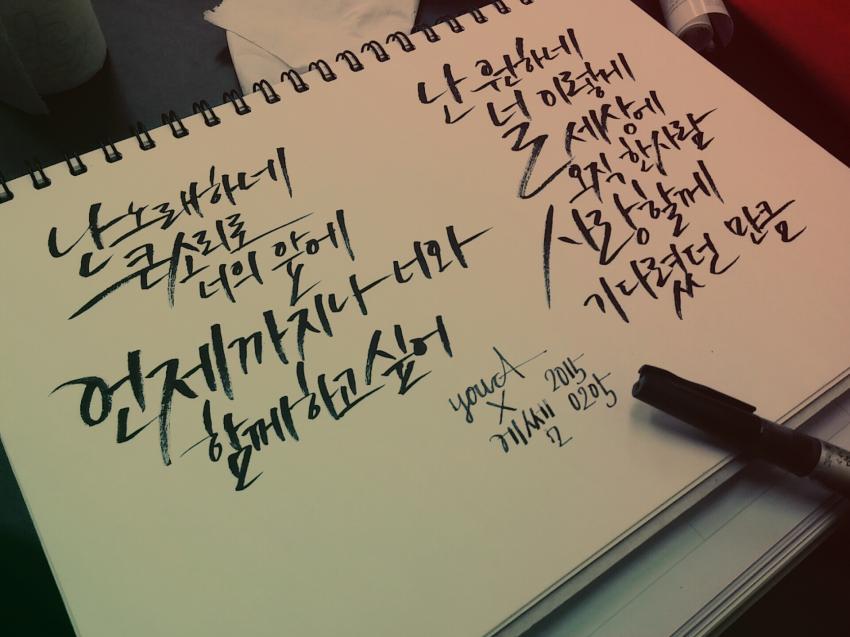 난 노래하네
큰 소리로
너의 앞에
언제까지나 너와
함께하고싶어
난 원하네
널 이렇게
세상에
오직 한사람
사랑할께
기다렸던 만큼
yourA
X
에쎌
2015